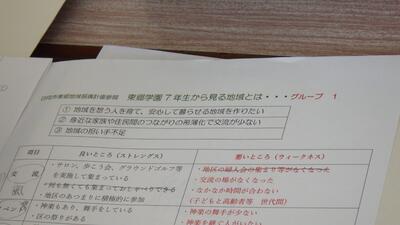 東郷学園7年生から見る地域とは・・・グループ 1
① 地域を想う人を育て、安心して暮らせる地域を作りたい
② 身近な家族や住民間のつながりの希薄化で交流が少ない
③ 地域の担い手不足
項目 良いところ（ストレングス） 悪いところ（ウィークネス）
・サロン、歩こう会、グラウンドゴルフ等
を実施して集まっている
・何も無くても集まっておしゃべりできる
・区のあつまりに積極的に参加
・地区の婦人会の集まり等がなくなった
・交流の場がなくなった
・なかなか時間が合わない
（子どもと高齢者等 世代間）
交流
・神楽もあり、舞手をしている
・区の祭りがある
・神楽の舞手が少ない